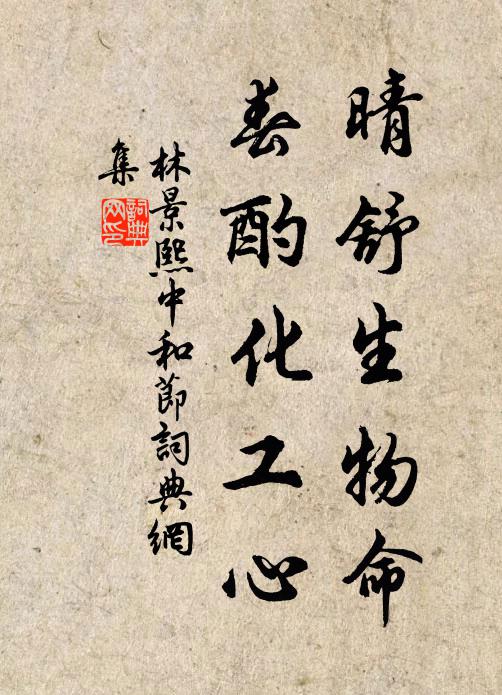 晴舒生物命
春酌化工心
林景熙中和節詞典網
集
詞典网印